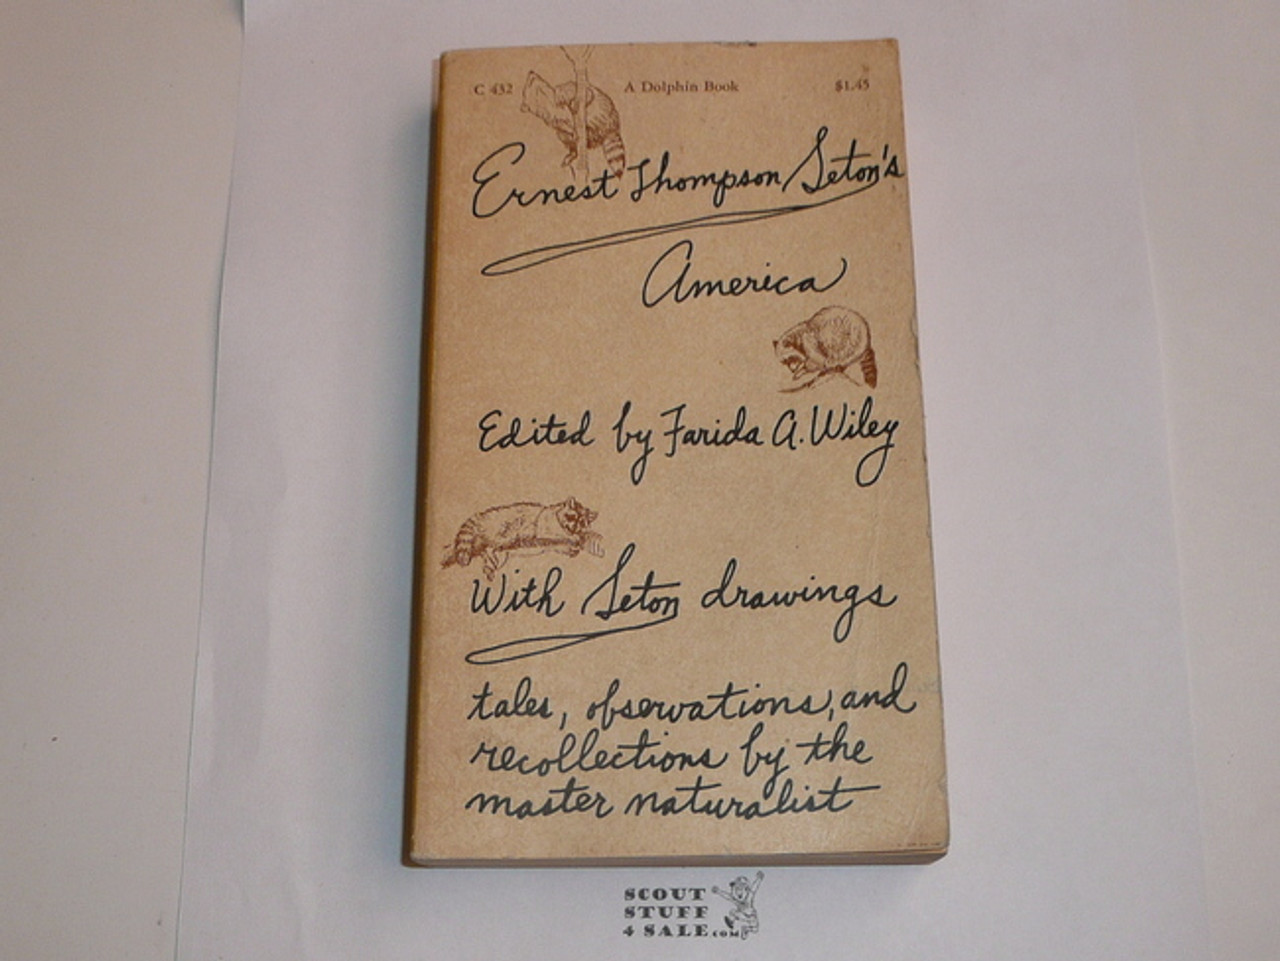 C 432 A Dolphin Book $1.45
Ernest Thompson Seton's
America
Edited by Farida A. Wiley
With Seton drawings
tales, observations, and
recollections by the
master naturalist
SCOUT
STUFF
4 SALE.COM